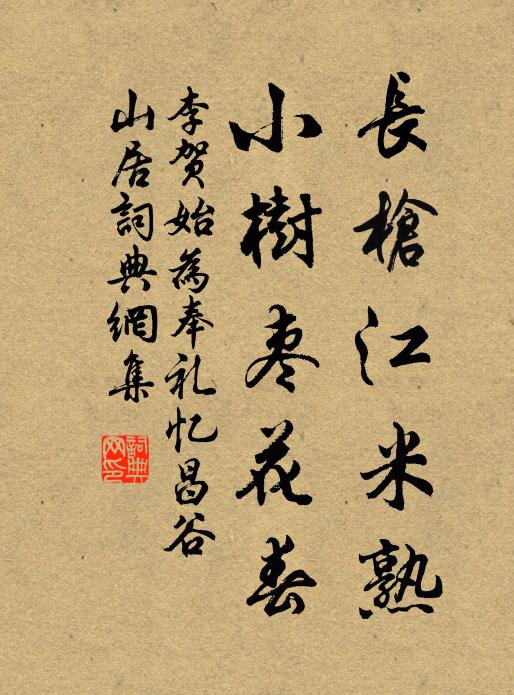 長槍江米熟
小樹枣花春
李贺始為奉礼忆昌谷
山居詞典網集
詞典
网印